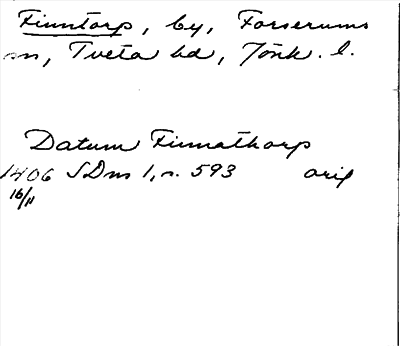 Finntorp, by, Forserums
sn, Tveta hd, Jönk. l.
Datum Finnathorp
1406 SDns 1, s. 593 orig
16/11